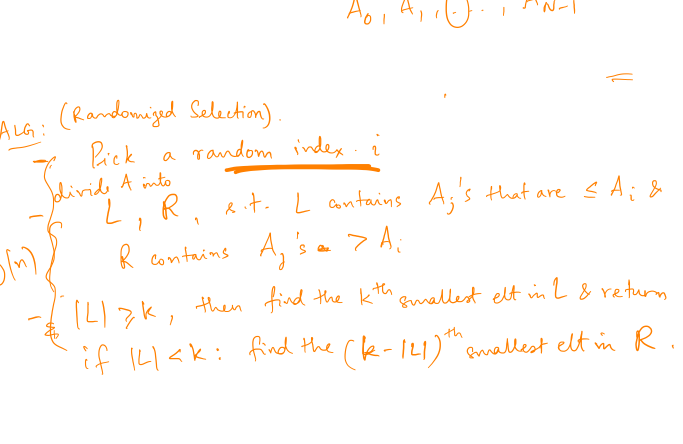 A₀, A₁, . . . , A_N-1
ALG: (Randomized Selection).
- Pick a random index i
divide A into
- L, R, s.t. L contains A_j's that are ≤ A_i &
R contains A_j's > A_i
O(n)
- if |L| ≥ k, then find the kᵗʰ smallest elt in L & return
if |L| < k : find the (k-|L|)ᵗʰ smallest elt in R.